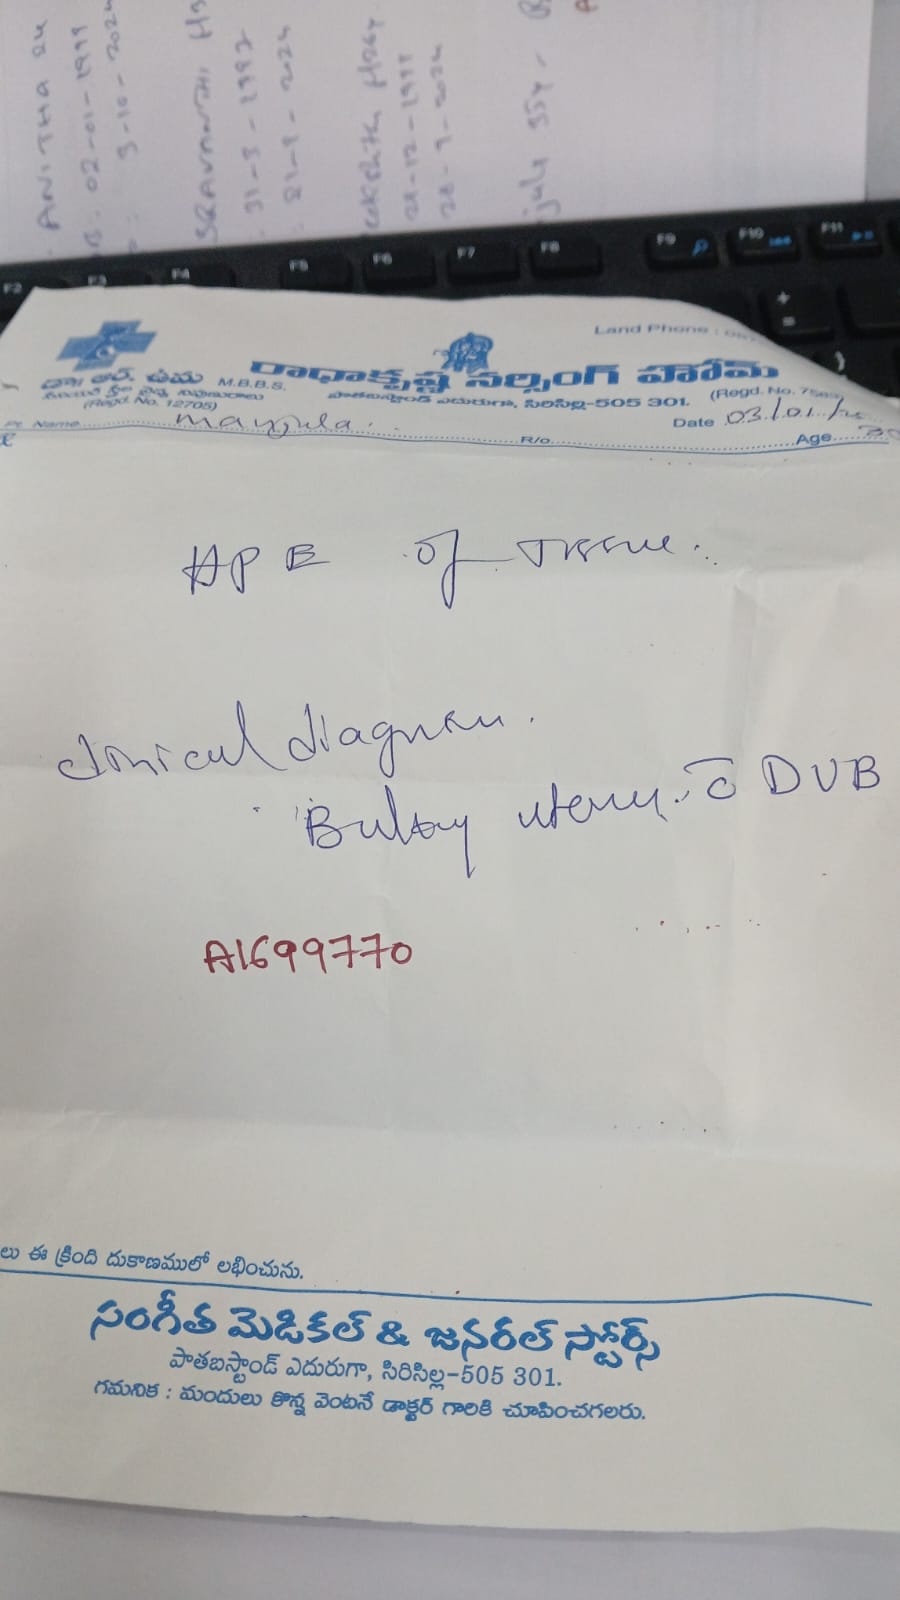 ANITHA 24
02-01-1999
3-10-2024
SRAVANTHI
31-3-1997
21-9-2024
24-12-1999
24-9-2024
35y
F2 F3 F4 F5 F6 F7 F8 F9 F10 F11
Land Phone :
డా॥ ఆర్. ఉమ M.B.B.S. రాధాకృష్ణ నర్సింగ్ హోమ్
(Regd. No. 12705) పాతబస్టాండ్ ఎదురుగా, సిరిసిల్ల-505 301. (Regd. No.
Pt. Name Manjula. R/o. Date 03/01/25 Age 30
HPE of Tissue.
Clinical diagnosis.
Bulky uterus c̄ DUB
A1699770
లు ఈ క్రింది దుకాణములో లభించును.
సంగీత మెడికల్ & జనరల్ స్టోర్స్
పాతబస్టాండ్ ఎదురుగా, సిరిసిల్ల-505 301.
గమనిక : మందులు కొన్న వెంటనే డాక్టర్ గారికి చూపించగలరు.